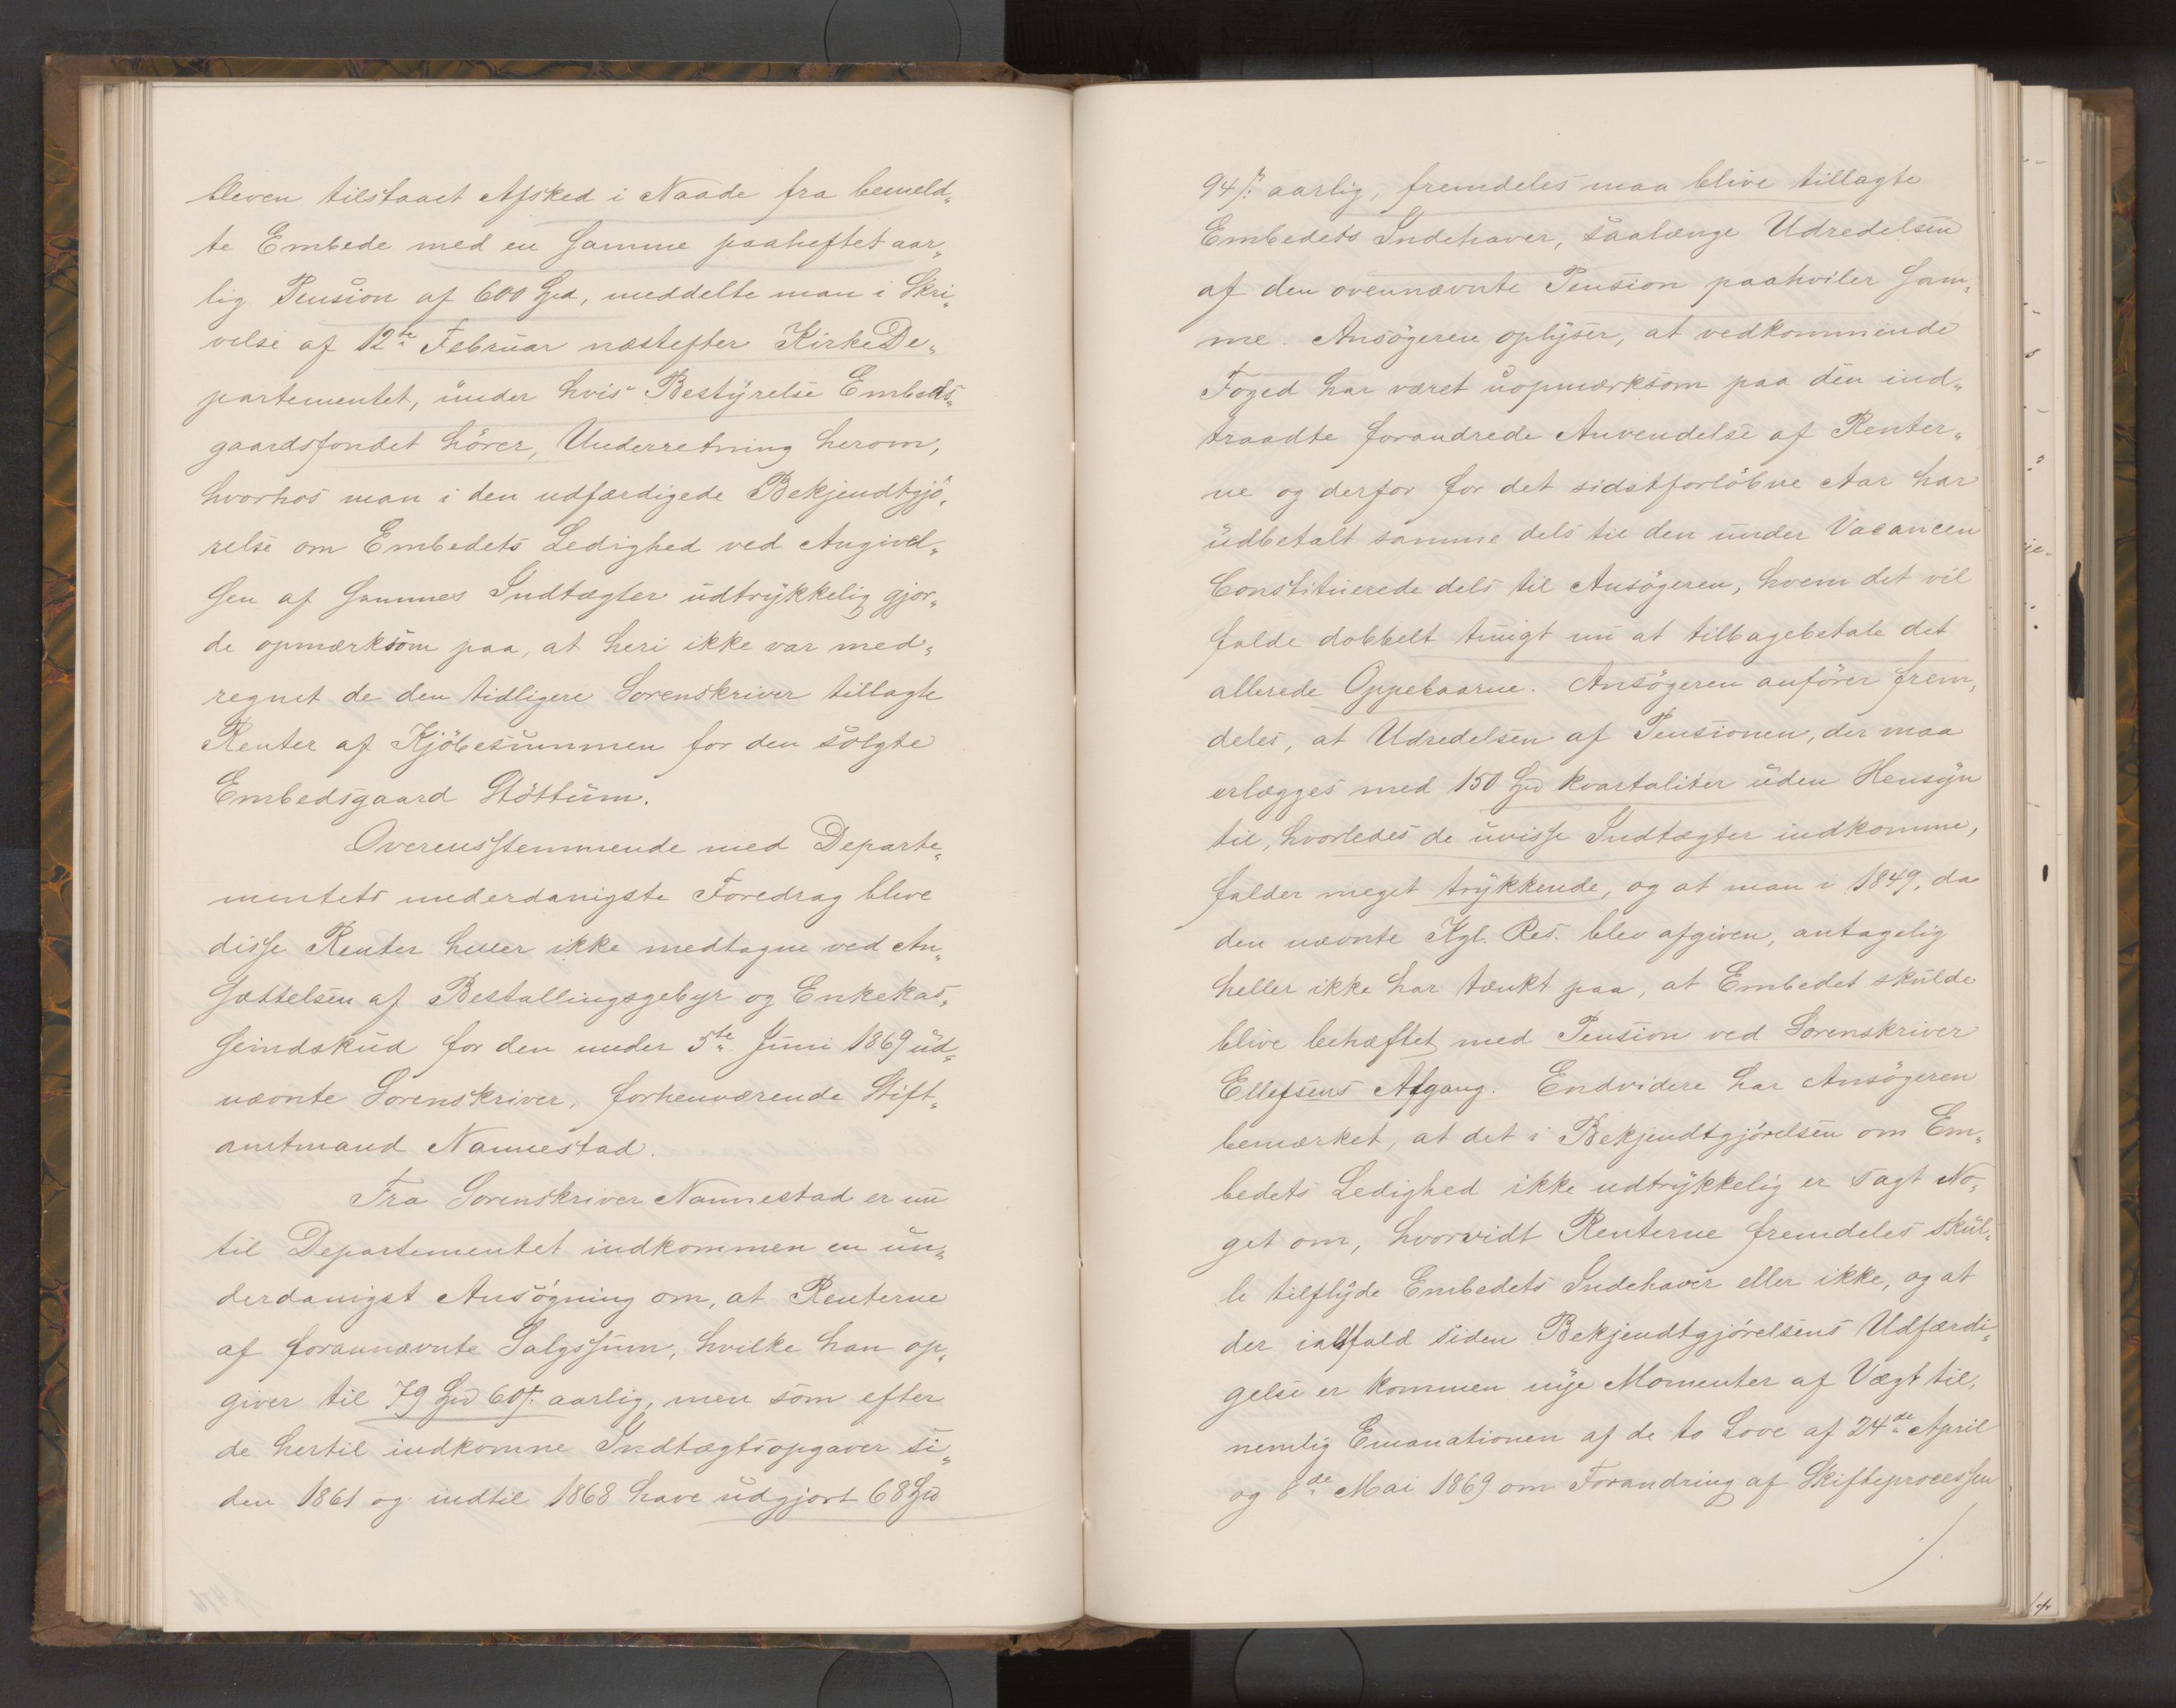 bleven tilstaaet Afsked i Naade fra bemeld„
te Embede med en samme paaheftet aar„
lig Pension af 600 Spd, meddelte man i Skri„
velse af 12te Februar næstefter KirkeDe„
partementet, under hvis Bestyrelse Embeds„
gaardsfondet hörer, Underretning herom,
hvorhos man i den udfærdigede Bekjendtgjö„
relse om Embedets Ledighed ved Angivel„
sen af sammes Indtægter udtrykkelig gjor„
de opmærksom paa, at heri ikke var med„
regnet de den tidligere Sorenskriver tillagte
Renter af Kjöbesummen for den solgte
Embedsgaard Stöttum.
Overensstemmende med Departe„
mentets underdanigste Foredrag bleve
disse Renter heller ikke medtagne ved An„
sættelsen af Bestallingsgebyr og Enkekas„
seindskud for den under 5te Juni 1869 ud„
nævnte Sorenskriver, forhenværende Stift„
amtmand Nannestad.
Fra Sorenskriver Nannestad er nu
til Departementet indkommen en un„
derdanigst Ansögning om, at Renterne
af forannævnte Salgssum, hvilke han op„
giver til 79 Spd 60 ß. aarlig, men som efter
de hertil indkomne Indtægtsopgaver si„
den 1861 og indtil 1868 have udgjort 68 Spd
94 ß. aarlig, fremdeles maa blive tillagte
Embedets Indehaver, saalænge Udredelsen
af den ovennævnte Pension paahviler sam„
me. Ansögeren oplyser, at vedkommende
Foged har været uopmærksom paa den ind„
traadte forandrede Anvendelse af Renter„
ne og derfor for det sidstforlöbne Aar har
udbetalt samme dels til den under Vacancen
Constituerede dels til Ansögeren, hvem det vil
falde dobbelt tungt nu at tilbagebetale det
allerede Oppebaarne. Ansögeren anförer frem„
deles, at Udredelsen af Pensionen, der maa
erlægges med 150 Spd kvartaliter uden Hensyn
til, hvorledes de uvisse Indtægter indkomme,
falder meget trykkende, og at man i 1849, da
den nævnte Kgl. Res. blev afgiven, antagelig
heller ikke har tænkt paa, at Embedet skulde
blive behæftet med Pension ved Sorenskriver
Ellefsens Afgang. Endvidere har Ansögeren
bemærket, at det i Bekjendtgjörelsen om Em„
bedets Ledighed ikke udtrykkelig er sagt No„
get om, hvorvidt Renterne fremdeles skul„
le tilflyde Embedets Indehaver eller ikke, og at
der ialfald siden Bekjendtgjörelsens Udfærdi„
gelse er kommen nye Momenter af Vægt til,
nemlig Emanationen af de to Love af 24de April
og 8de Mai 1869 om Forandring af Skifteprocessen